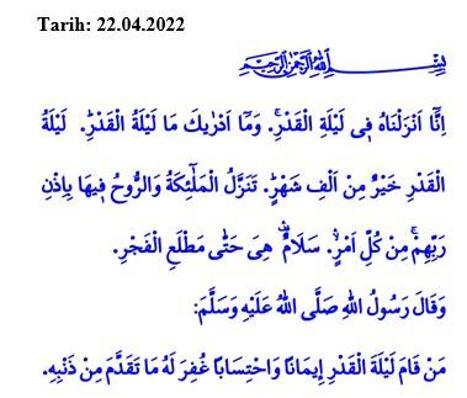 Tarih: 22.04.2022
بِسْمِ اللّٰهِ الرَّحْمٰنِ الرَّحِيمِ
اِنَّٓا اَنْزَلْنَاهُ ف۪ي لَيْلَةِ الْقَدْرِۚ. وَمَٓا اَدْرٰيكَ مَا لَيْلَةُ الْقَدْرِۜ. لَيْلَةُ
الْقَدْرِ خَيْرٌ مِنْ اَلْفِ شَهْرٍۜ. تَنَزَّلُ الْمَلٰٓئِكَةُ وَالرُّوحُ ف۪يهَا بِاِذْنِ
رَبِّهِمْۚ مِنْ كُلِّ اَمْرٍۙۛ. سَلَامٌ۠ۛ هِيَ حَتّٰى مَطْلَعِ الْفَجْرِ.
وَقَالَ رَسُولُ اللّٰهِ صَلَّى اللّٰهُ عَلَيْهِ وَسَلَّمَ:
مَنْ قَامَ لَيْلَةَ الْقَدْرِ إِيمَانًا وَاحْتِسَابًا غُفِرَ لَهُ مَا تَقَدَّمَ مِنْ ذَنْبِهِ.